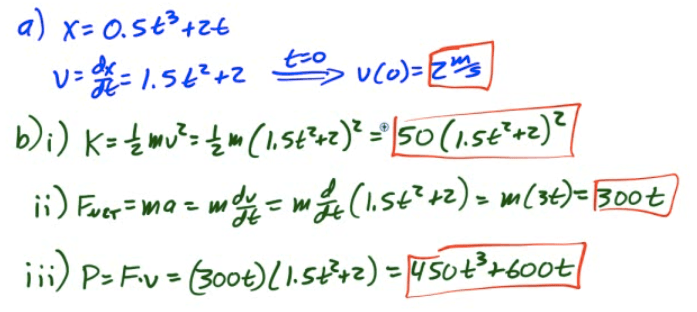 a) x = 0.5t³+2t
v = dx/dt = 1.5t²+2 t=0 ⟹ v(0) = 2 m/s
b) i) K = ½mv² = ½m(1.5t²+2)² = 50(1.5t²+2)²
ii) F_NET = ma = m dv/dt = m d/dt (1.5t²+2) = m(3t) = 300t
iii) P = F·v = (300t)(1.5t²+2) = 450t³+600t